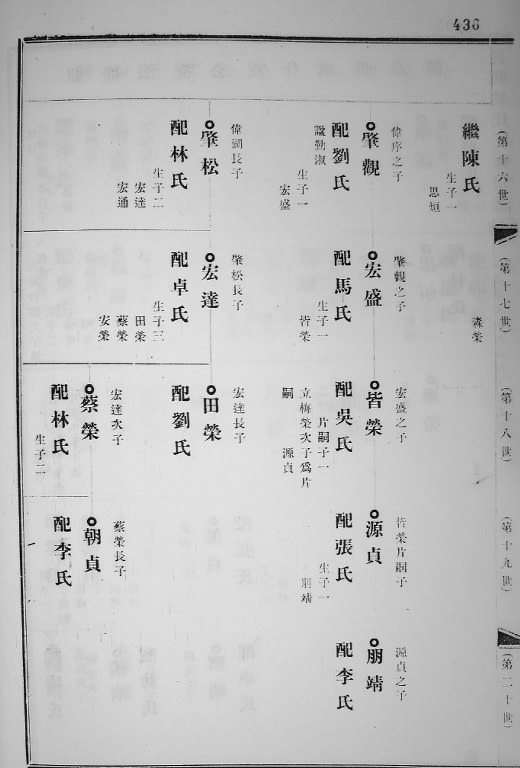 436
(第十六世)
繼陳氏
生子一
思烜
偉序之子
肇觀
配劉氏
諡勤淑
生子一
宏盛
偉瀾長子
肇松
配林氏
生子二
宏達
宏通
(第十七世)
森榮
肇觀之子
宏盛
配馬氏
生子一
皆榮
肇松長子
宏達
配卓氏
生子三
田榮
蔡榮
安榮
(第十八世)
宏盛之子
皆榮
配吳氏
片嗣子一
立梅榮次子爲片
嗣 源貞
宏達長子
田榮
配劉氏
宏達次子
蔡榮
配林氏
生子二
(第十九世)
皆榮片嗣子
源貞
配張氏
生子一
朋靖
蔡榮長子
朝貞
配李氏
(第二十世)
源貞之子
朋靖
配李氏